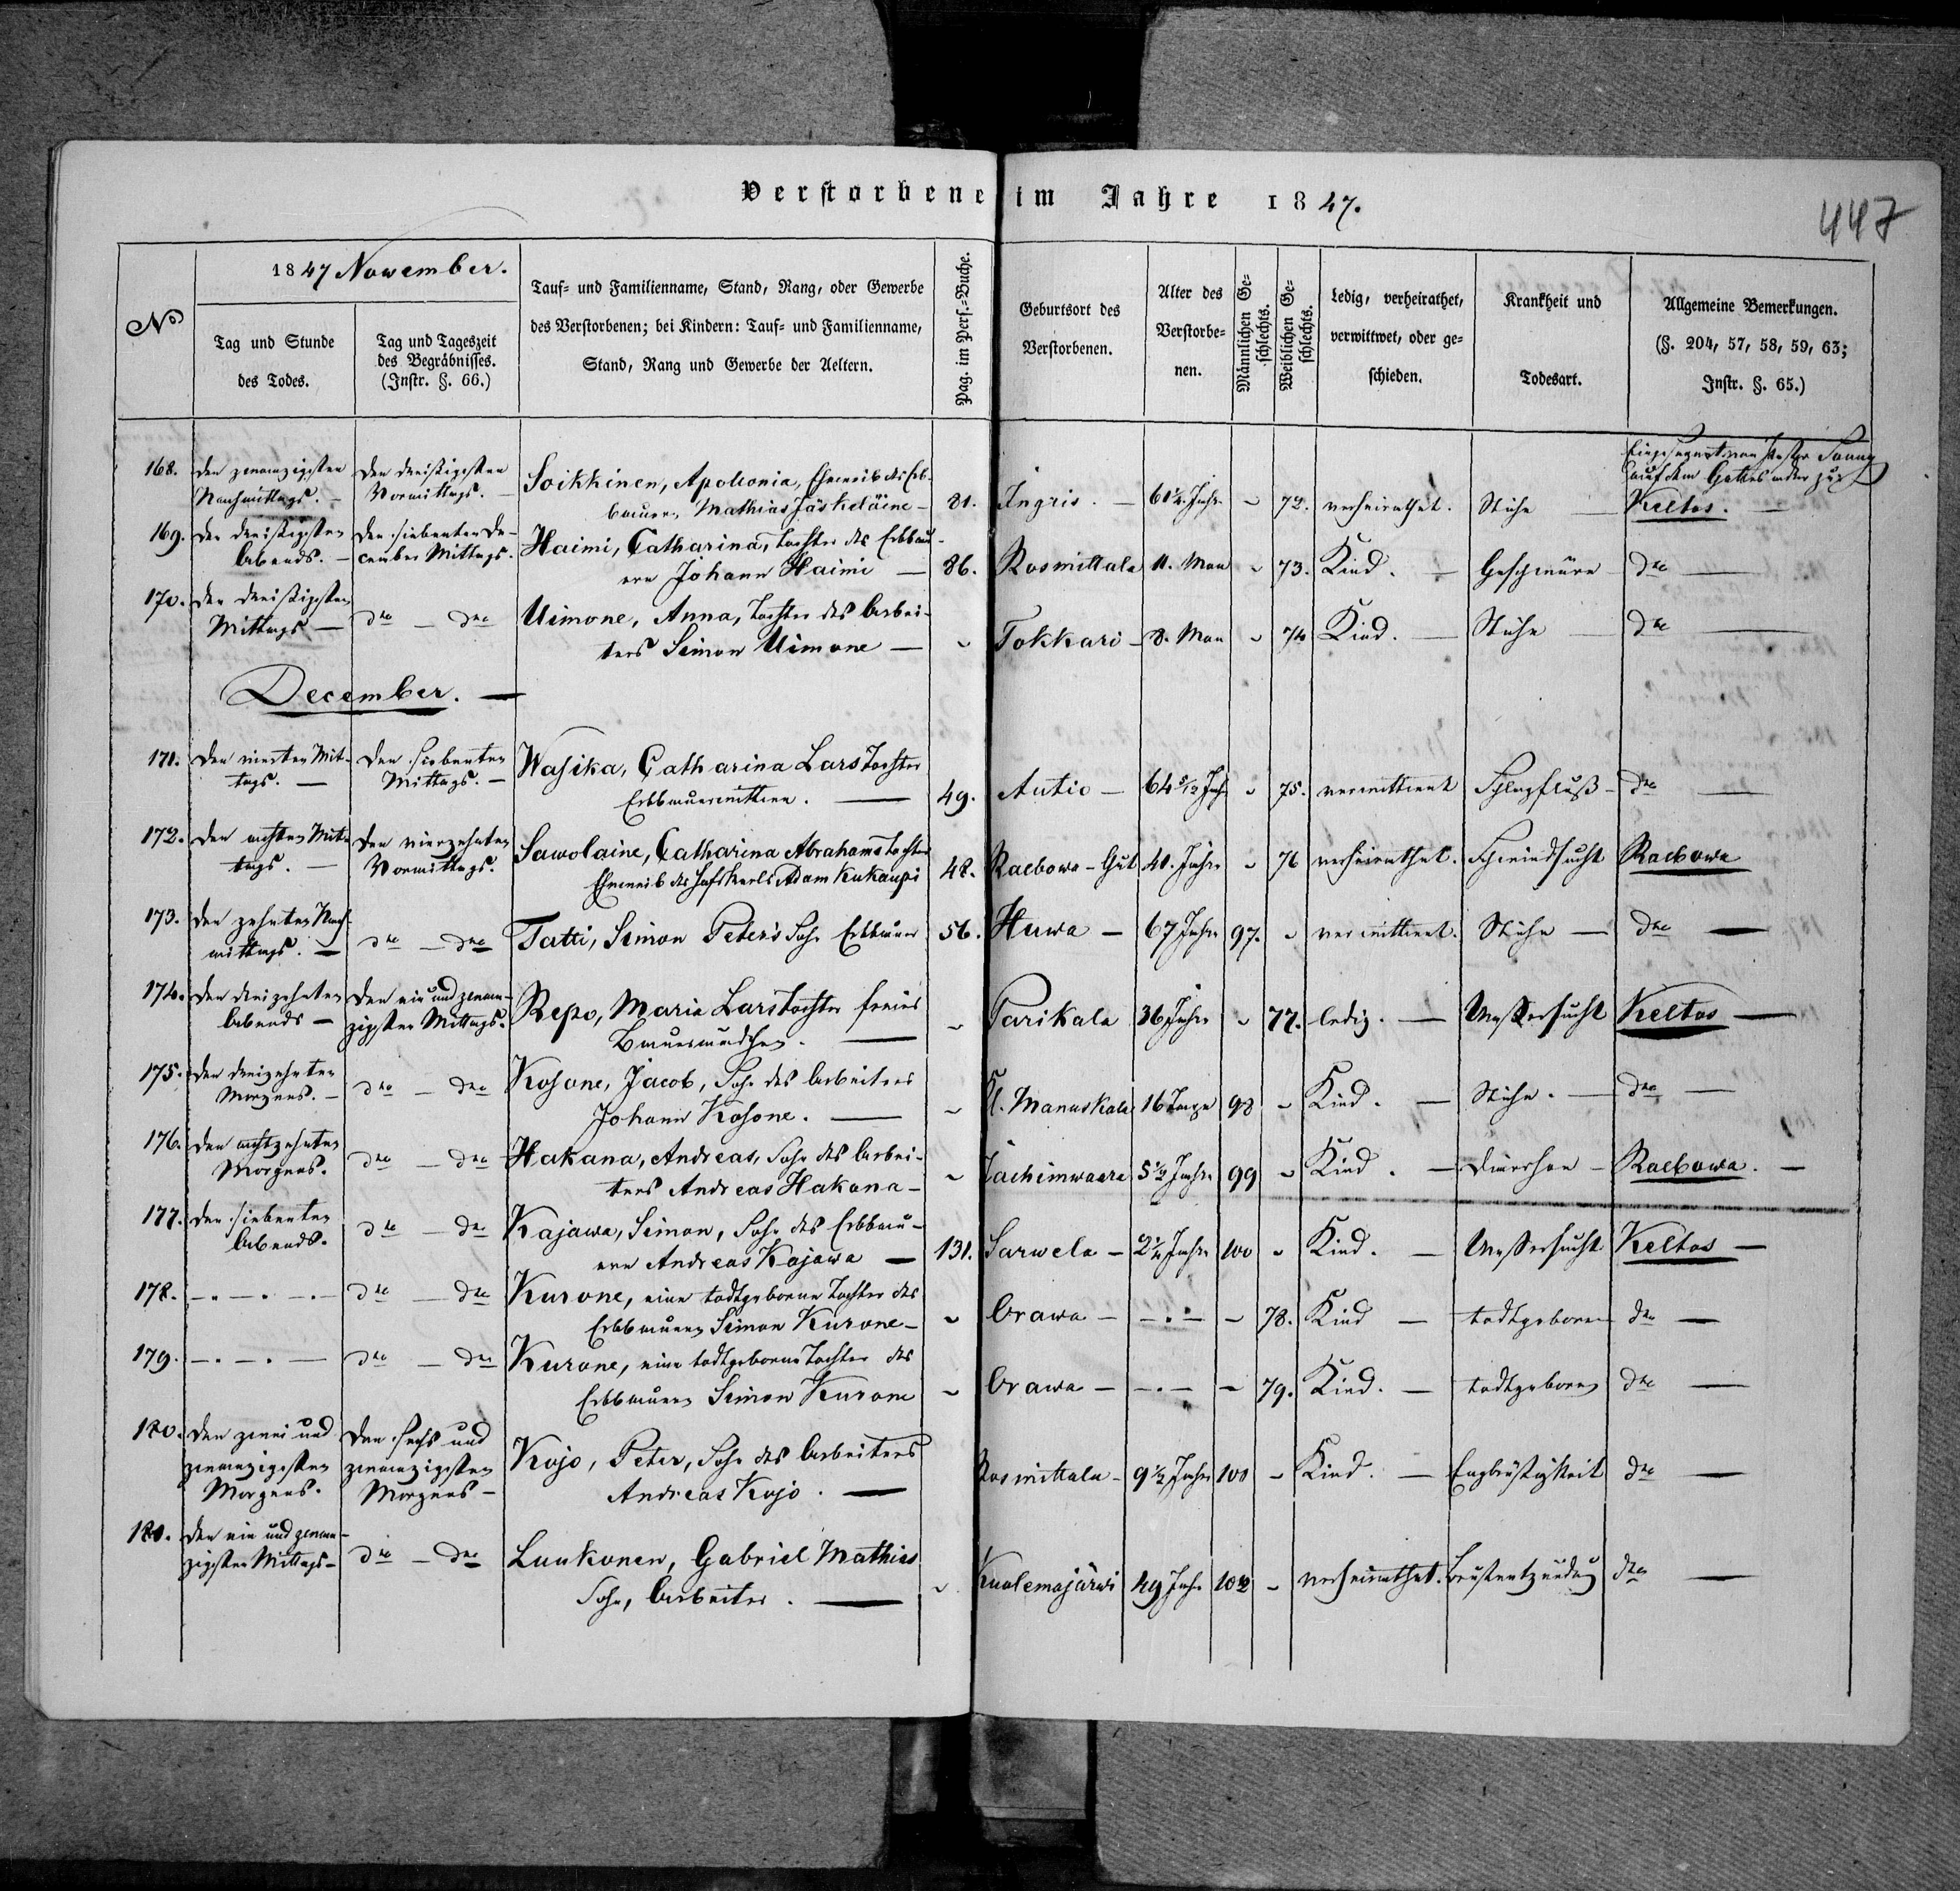 Verstorbene im Jahre 1847.
447
No
1847 November.
Tag und Stunde
des Todes.
Tag und Tageszeit
des Begräbnisses.
(Instr. §. 66.)
Tauf- und Familienname, Stand, Rang, oder Gewerbe
des Verstorbenen; bei Kindern: Tauf- und Familienname,
Stand, Rang und Gewerbe der Aeltern.
Pag. im Pers.-Buche.
Geburtsort des
Verstorbenen.
Alter des
Verstorbe-
nen.
Männlichen Ge-
schlechts.
Weiblichen Ge-
schlechts.
Ledig, verheirathet,
verwittwet, oder ge-
schieden.
Krankheit und
Todesart.
Allgemeine Bemerkungen.
(§. 204, 57, 58, 59, 63;
Instr. §. 65.)
168. den zwanzigsten
Nachmittags. —
den dreißigsten
Vormittags. —
Soikkinen, Apolonia, Eheweib des Erb-
bauern, Mathias Jäskeläine —
81. Ingris. — 61 Jahr - 72. verheirathet. Ruhr —
Eingesegnet von Pastor
auf dem Gottesacker zu
Keltos. —
169. den dreißigsten
Abends. —
den siebenten De-
cember Mittags.
Haimi, Catharina, Tochter des Erbbau-
ern Johann Haimi —
86. Rosmittala 11. Mon - 73. Kind. — Geschwüre dto —
170. den dreißigsten
Mittags —
dto — dto
Uimone, Anna, Tochter des Arbei-
ters Simon Uimone —
- Tokkari — 8. Mon - 74 Kind. — Ruhr — dto —
December. —
171. den vierten Mit-
tags. —
den siebenten
Mittags. —
Wasika, Catharina Lars Tochter
Erbbauerwittwe. —
49. Autio — 64 5/12 Jahr - 75. verwittwet Schlagfluß — dto —
172. den achten Mit-
tags. —
den vierzehnten
Vormittags.
Sawolaine, Catharina Abrahams Tochter
Eheweib des Hofskerls Adam Kukaupi
48. Raebowa-Gut 40. Jahr - 76 verheirathet. Schwindsucht Raebowa
173. den zehnten Nach-
mittags. —
dto — dto
Tatti, Simon Peter's Sohn Erbbauer
56. Huwa — 67 Jahr 97. - verwittwet. Ruhr — dto —
174. den dreizehnten
Abends —
den ein und zwan-
zigsten Mittags.
Repo, Maria Lars Tochter freies
Bauermädchen. —
- Parikala 36 Jahr - 77. ledig. — Wassersucht Keltos —
175. den dreizehnten
Morgens. —
dto — dto
Kosone, Jacob, Sohn des Arbeiters
Johann Kosone. —
- Kl. Manuskala 16 Tage 98 - Kind. — Ruhr. — dto —
176. den achtzehnten
Morgens.
dto — dto
Hakana, Andreas, Sohn des Arbei-
ters Andreas Hakana —
- Jachimwaara 5 1/2 Jahr 99 - Kind. — Diarrhoe — Raebowa. —
177. den siebenten
Abends.
dto — dto
Kajawa, Simon, Sohn des Erbbau-
ern Andreas Kajawa —
131. Sarwela — 2 1/4 Jahr 100 - Kind. — Wassersucht Keltos —
178. —.—.—.— dto — dto
Kurone, eine todtgeborne Tochter des
Erbbauern Simon Kurone —
- Orawa — —.— - 78. Kind — todtgeboren dto —
179. —.—.— dto — dto
Kurone, eine todtgeborne Tochter des
Erbbauern Simon Kurone
- Orawa — —.— - 79. Kind. — todtgeboren dto —
180. den zwei und
zwanzigsten
Morgens.
den sechs und
zwanzigsten
Morgens —
Kojo, Peter, Sohn des Arbeiters
Andreas Kojo. —
Rosmittala — 9 1/2 Jahr 100 - Kind. — Engbrüstigkeit dto —
181. den ein und zwan-
zigsten Mittags —
dto — dto
Luukonen, Gabriel Mathies
Sohn, Arbeiter. —
- Kuolemajärwi 49 Jahr 102 - verheirathet. Brustentzündung dto —